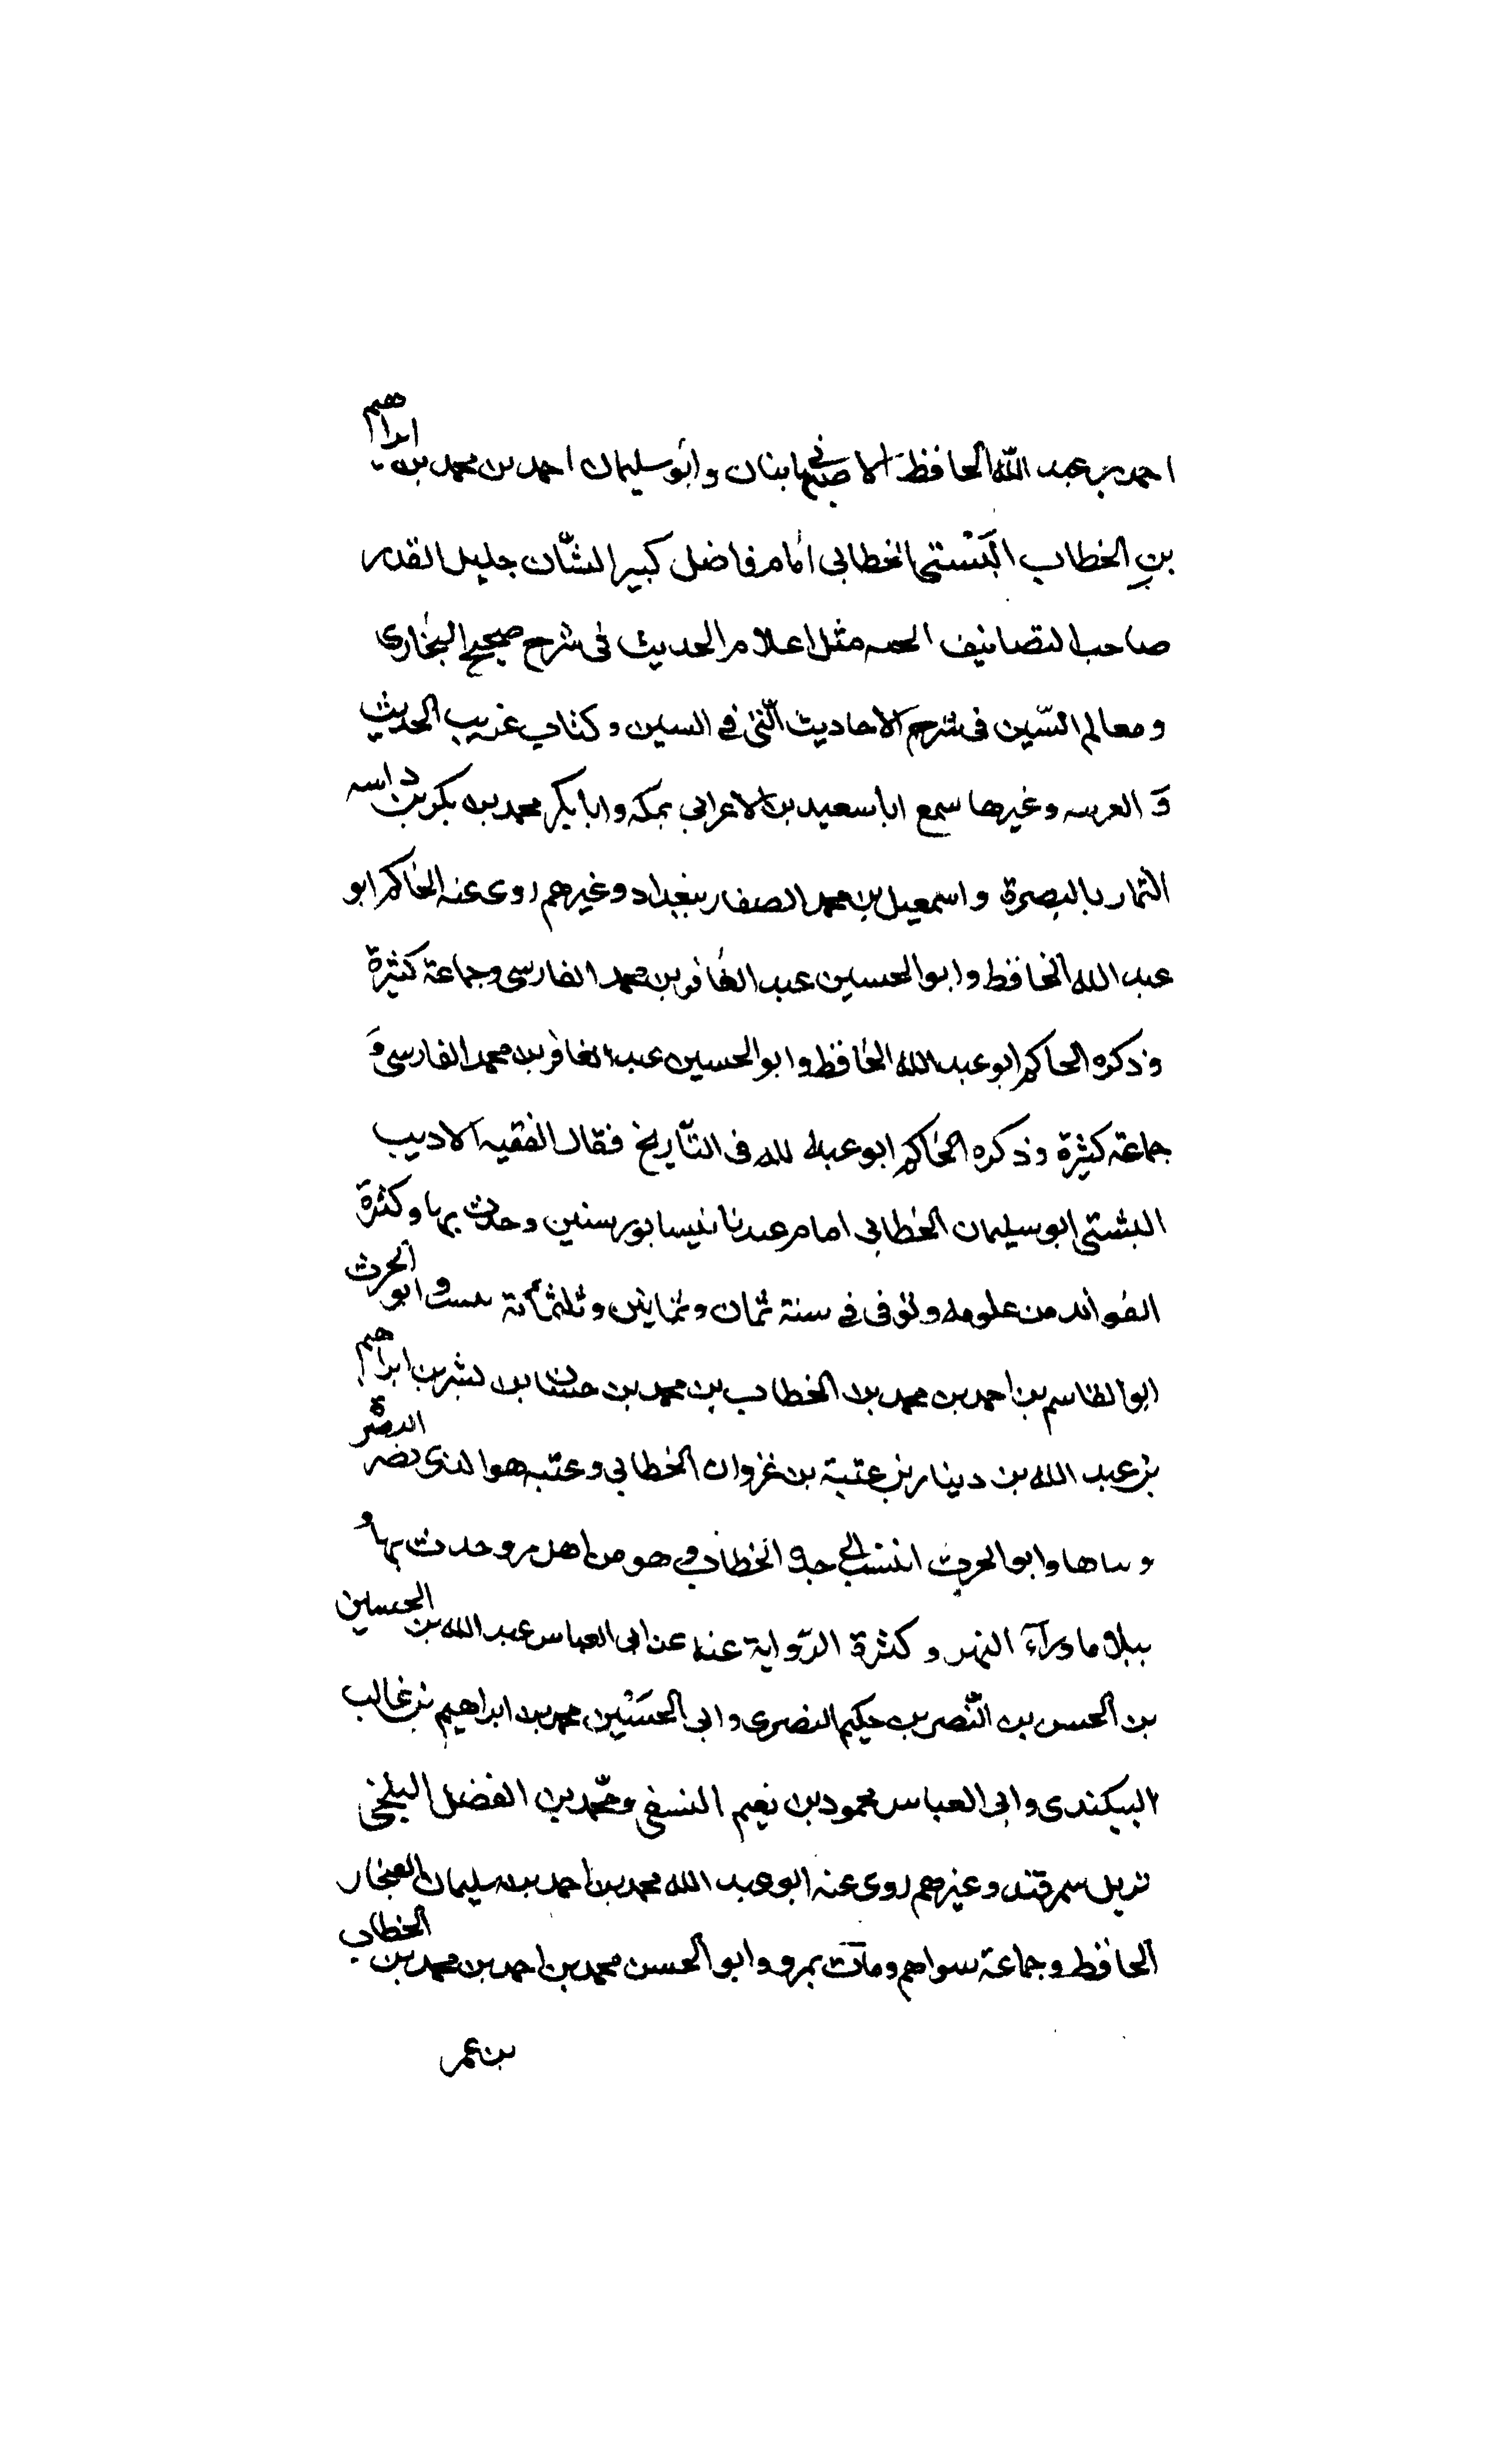 احمد بن عبد الله الحافظ الاصبهانى وابو سليمان احمد بن محمد بن ابراهيم
بن الخطاب البستى الخطابى امام فاضل كبير الشّان جليل القدر
صاحب التصانيف الحسنه مثل اعلام الحديث فى شرح صحيح البخارى
ومعالم السّنن فى شرح الاحاديث الّتى فى السنن وكتاب غريب الحديث
وَ العربيه وغيرها سمع ابا سعيد بن الاعرابى بمكة وابا بكر محمد بن بكر بن داسه
التمار بالبصرة واسمعيل بن محمد الصفار ببغداد وغيرهم روى عنه الحاكم ابو
عبد الله الحافظ وابو الحسين عبد الغافر بن محمد الفارسى وجماعة كثيرة
وذكره الحاكم ابو عبد الله الحافظ وابو الحسين عبد الغافر بن محمد الفارسى وَ
جماعة كثيرة وذكره الحاكم ابو عبد الله فى التّاريخ فقال الفقيه الاديب
البستى ابو سليمان الخطابى امام عندنا نيسابور سنين وحدث بها وكثرة
الفوائد من علومه وتوفى فى سنة ثمان وثمانين وثلثمائة ببست وابو الحرث
ابو القاسم بن احمد بن محمد بن الخطاب بن محمد بن حسان بن بشر بن ابراهيم
بن عبد الله بن دينار بن عتبة بن غزوان الخطابى وعتبه هو الذى مصر البصرة
وبناها وابو الحرث انتسب الى جده الخطاب وهو من اهل مرو حدث بها و
ببلاد ما ورآء النهر وكثرة الرّواية عنه عن ابى العباس عبد الله بن الحسين
بن الحسن بن النّضر بن حكيم النضرى وابى الحسَين محمد بن ابراهيم بن غالب
البيكندى وابى العباس محمود بن نعيم النسفى ومحّمد بن الفضل البلخى
نزيل سمرقند وغيرهم روى عنه ابو عبد الله محمد بن احمد بن سليمان الغنجار
الحافظ وجماعة سواهم ومات بمرو وابو الحسن محمد بن احمد بن محمد بن الخطاب
بن عمر